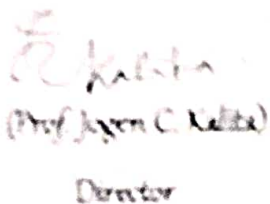 Kalita
(Prof. Jogen C. Kalita)
Director